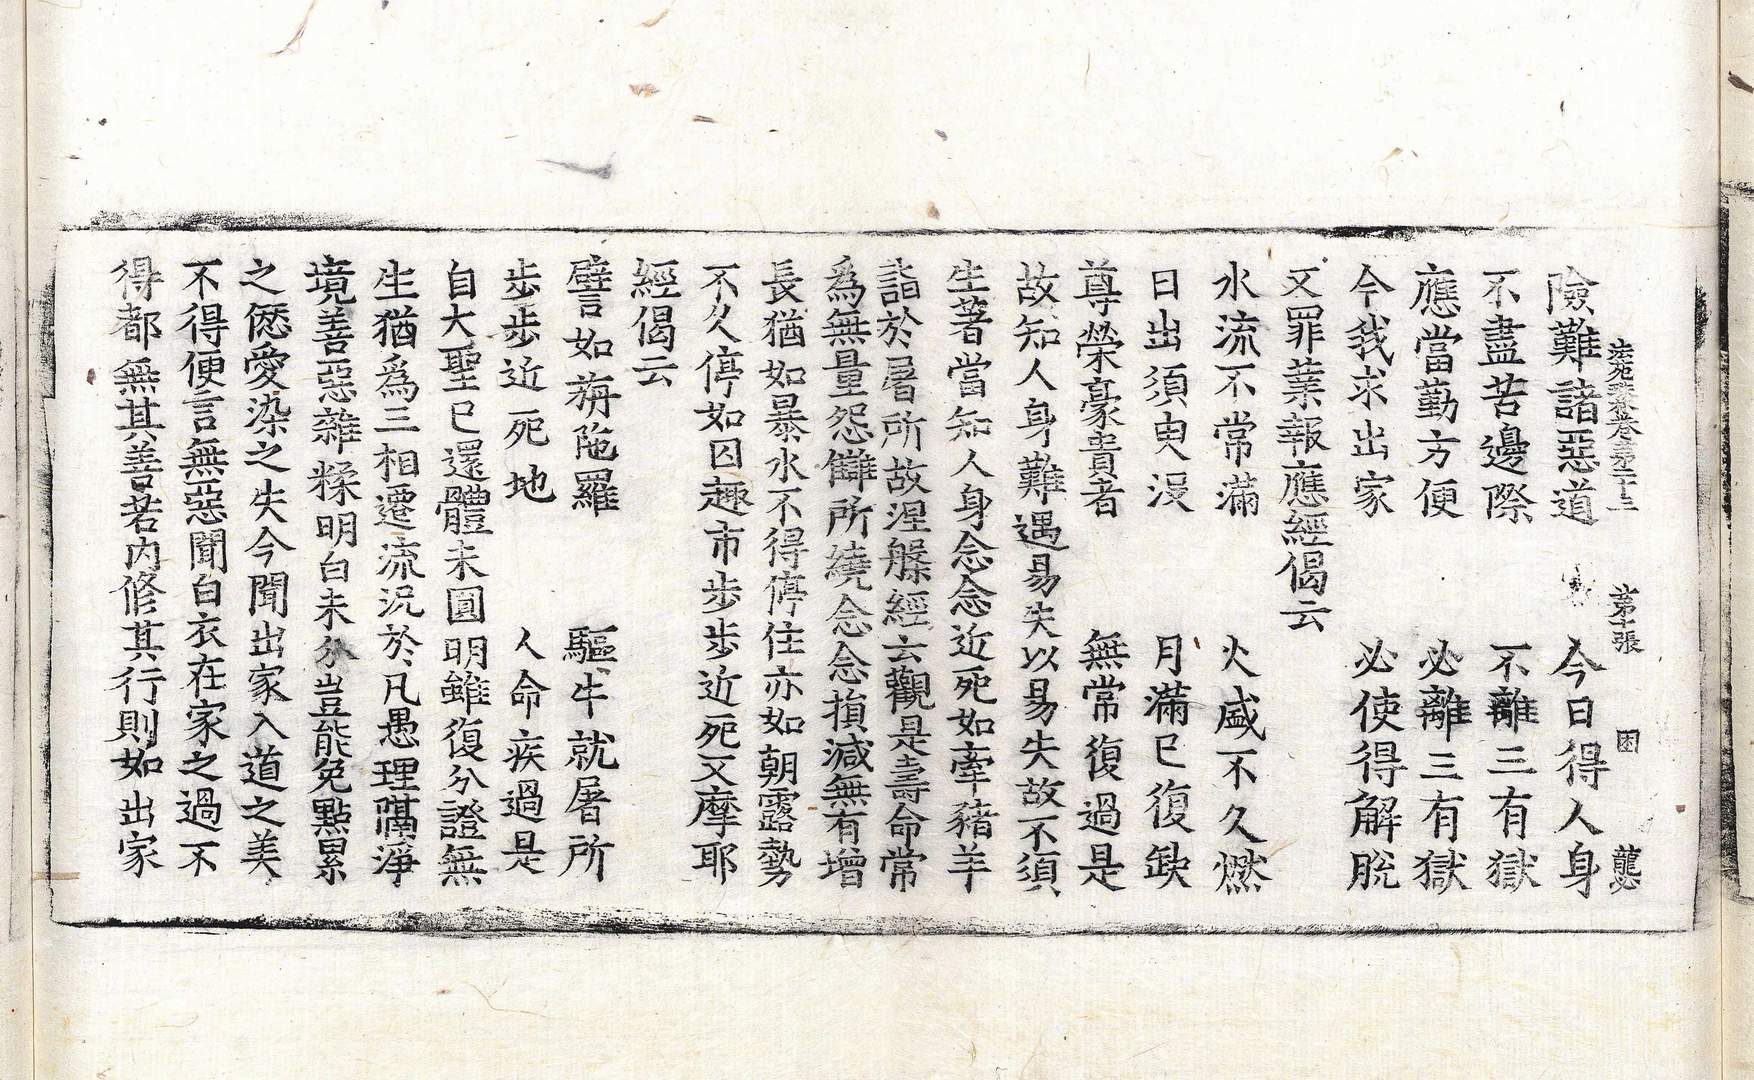 法苑珠林卷第二十三 第十張 困 龔必
險難諸惡道 今日得人身
不盡苦邊際 不離三有獄
應當勤方便 必離三有獄
今我求出家 必使得解脫
又罪業報應經偈云
水流不常滿 火盛不久燃
日出須臾沒 月滿已復缺
尊榮豪貴者 無常復過是
故知人身難遇易失以易失故不須
生著當知人身念念近死如牽豬羊
詣於屠所故涅槃經云觀是壽命常
為無量怨讎所繞念念損減無有增
長猶如暴水不得停住亦如朝露勢
不久停如囚趣市步步近死又摩耶
經偈云
譬如旃陁羅 驅牛就屠所
步步近死地 人命疾過是
自大聖已還體未圓明雖復分證無
生猶為三相遷流況於凡愚理隔淨
境善惡雜糅明白未分豈能免點累
之愆愛染之失今聞出家入道之美
不得便言無惡聞白衣在家之過不
得都無其善若內修其行則如出家